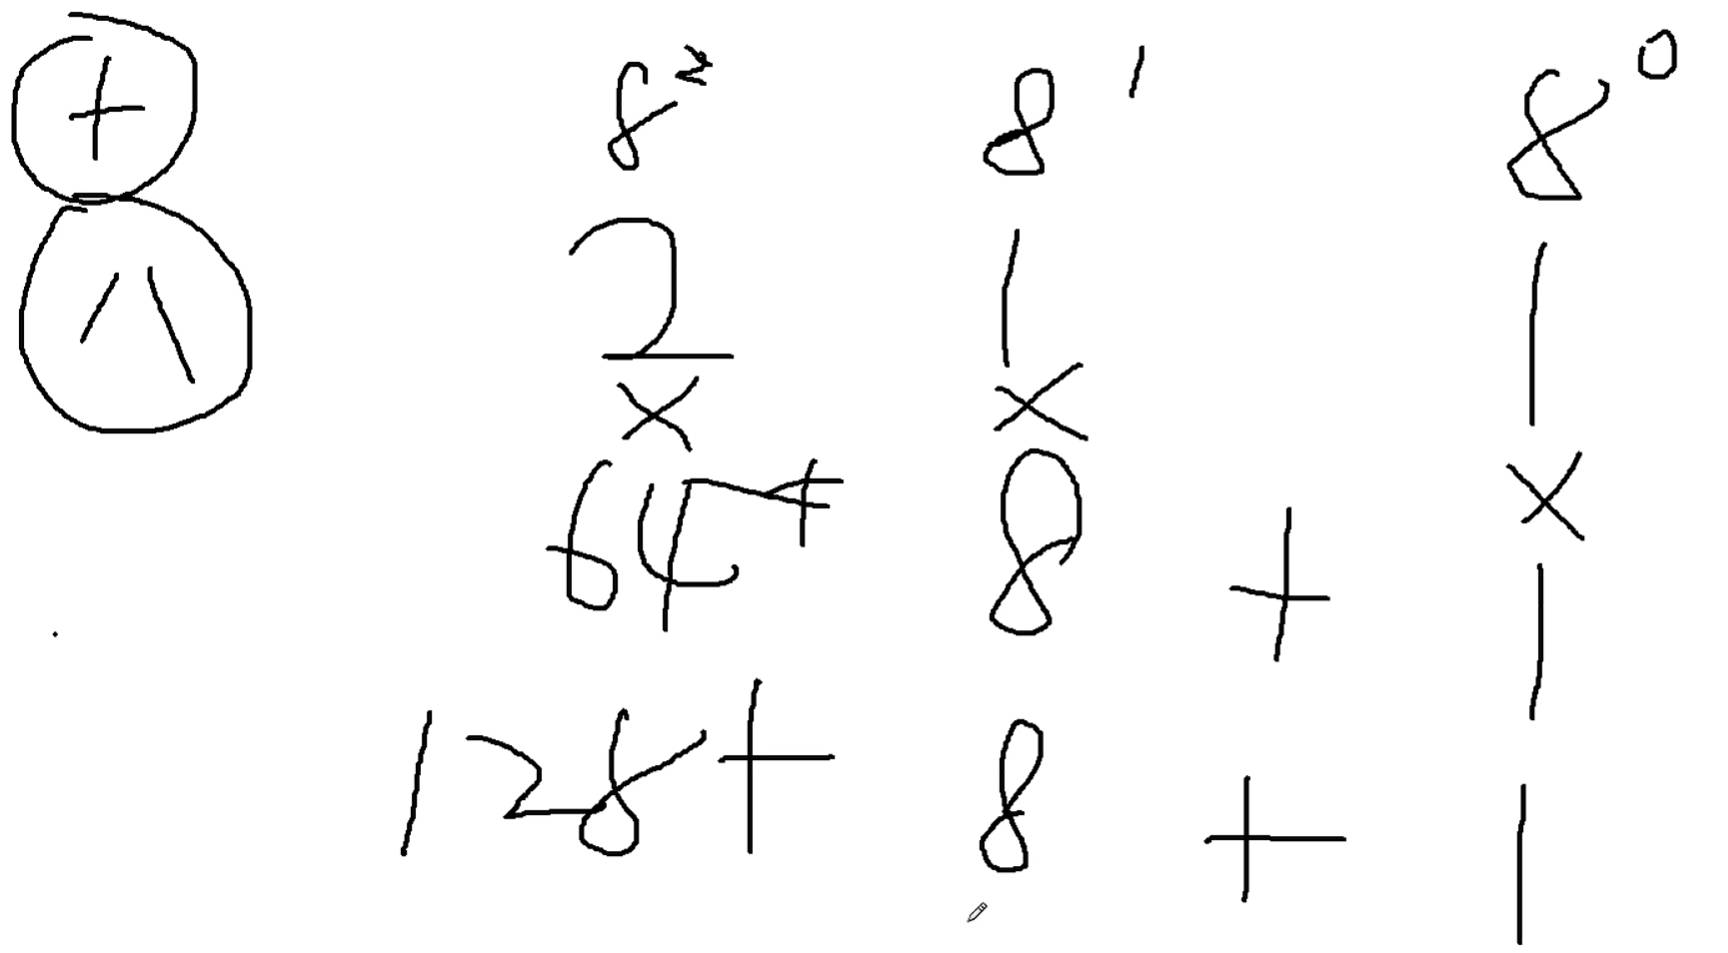 +
8² 8¹ 8⁰
∧
2 1 1
× × ×
64 + 8 + 1
128 + 8 + 1